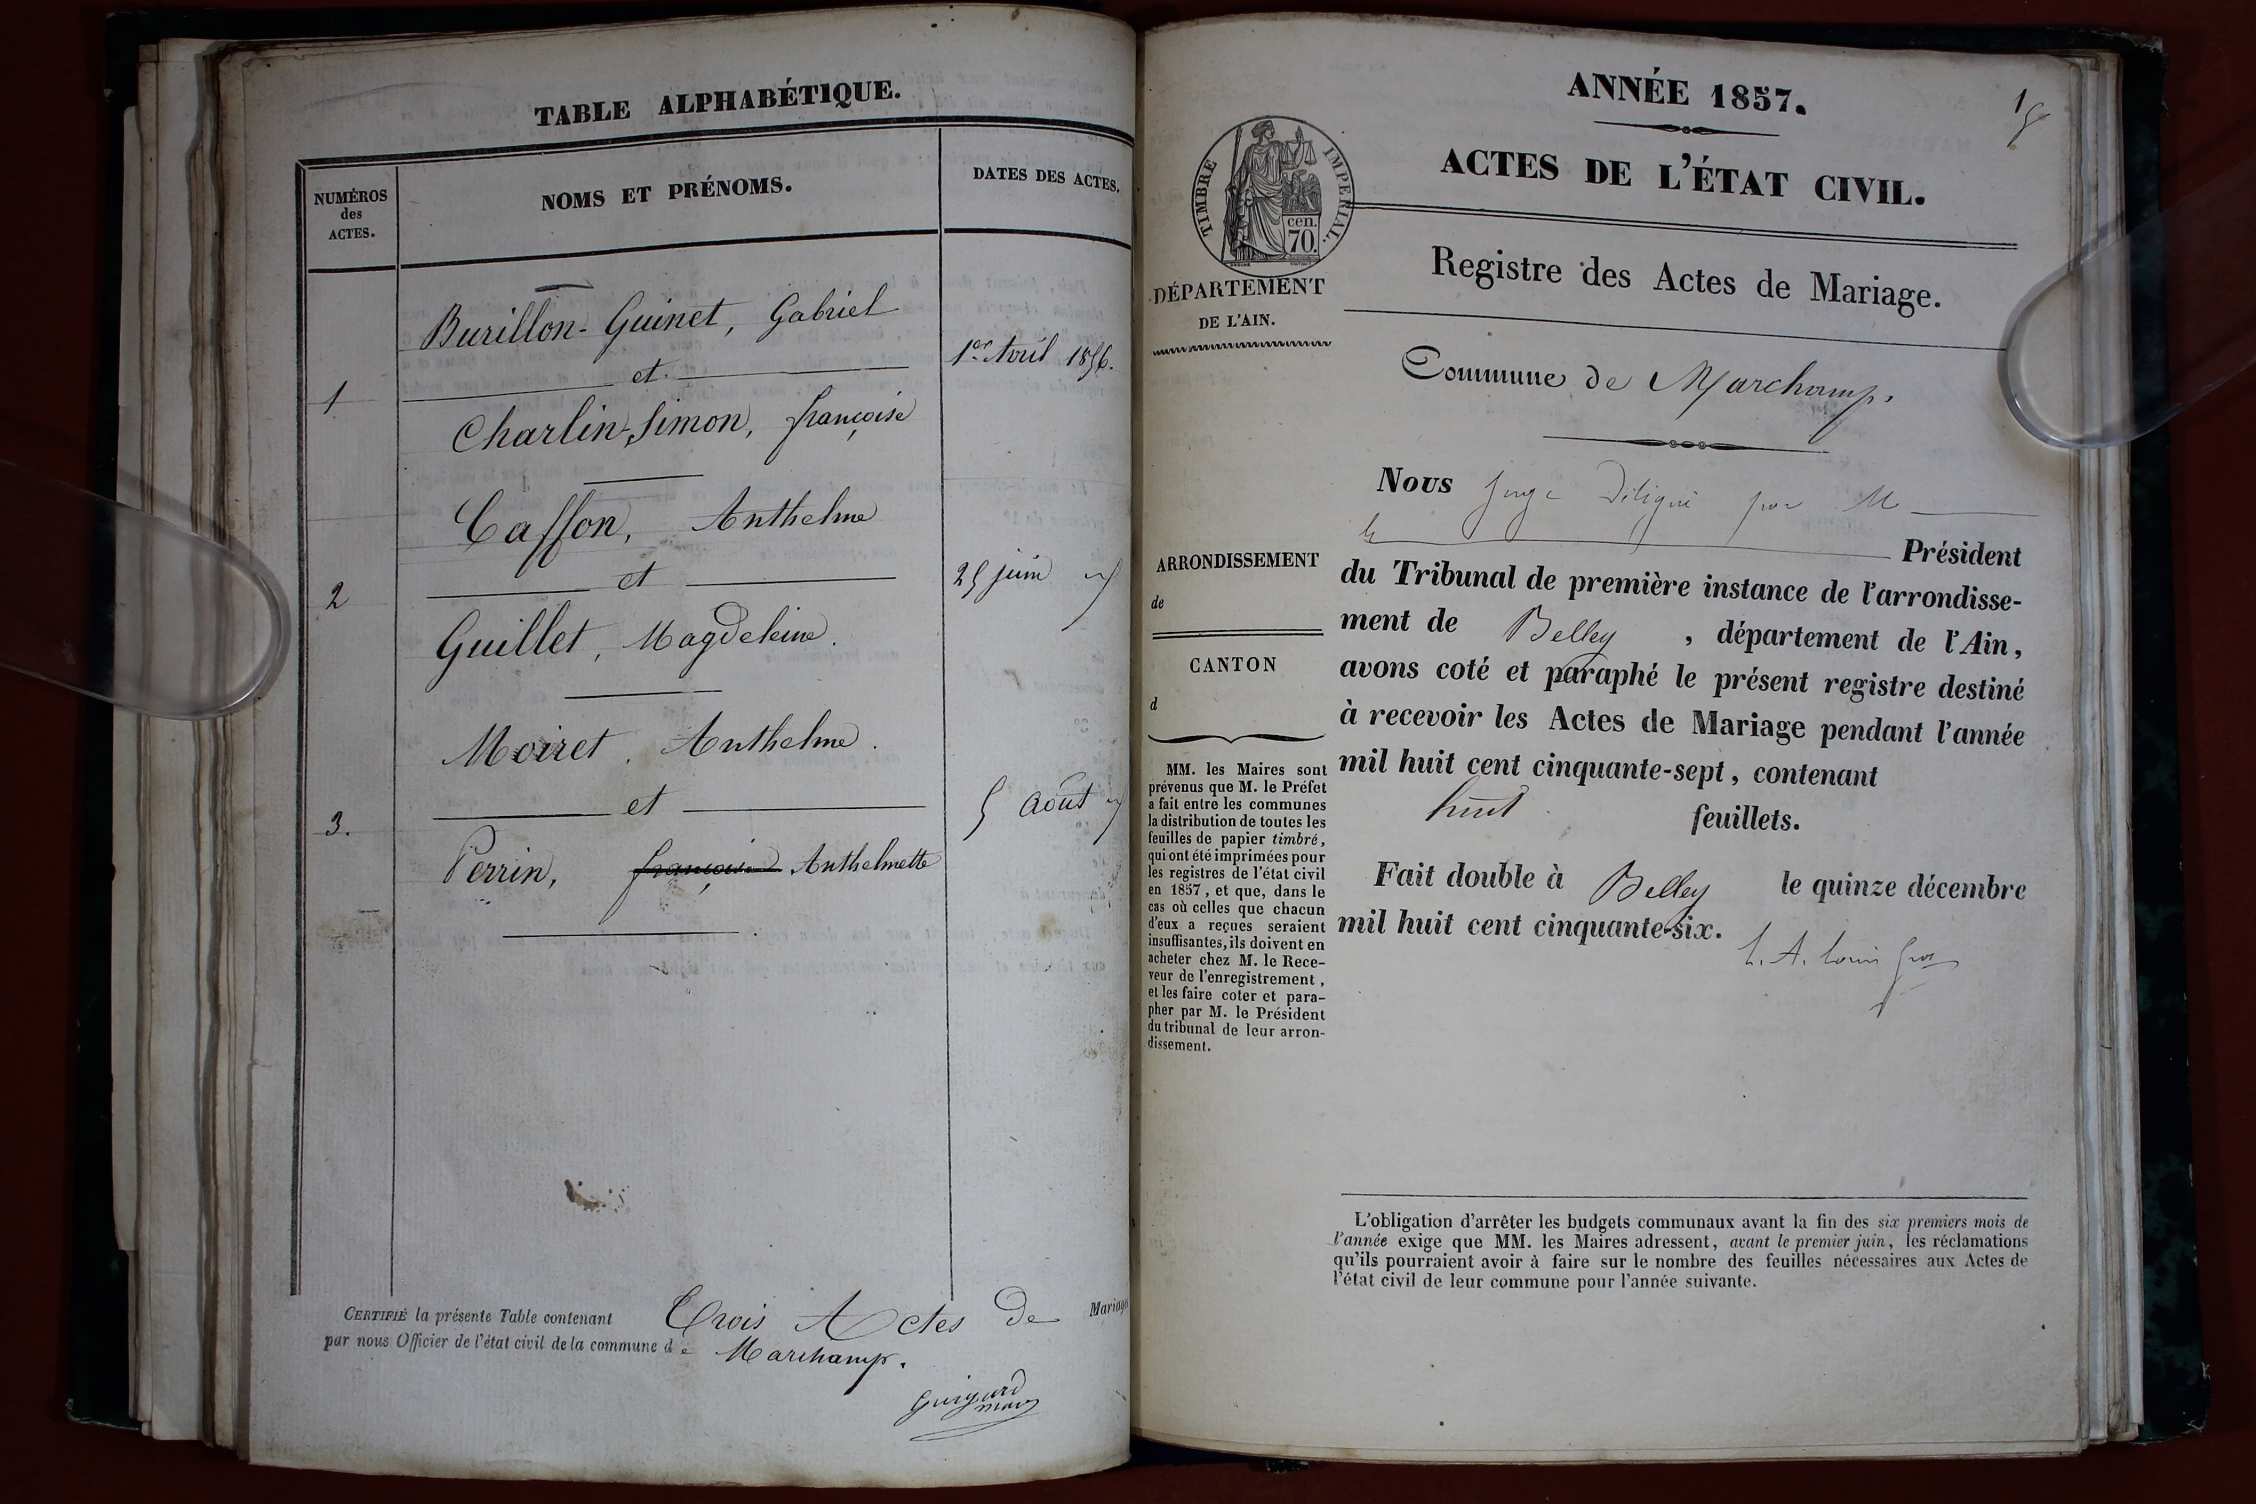 TABLE ALPHABÉTIQUE.
NUMÉROS
des
ACTES.
NOMS ET PRÉNOMS.
DATES DES ACTES.
Burillon-Guinet, Gabriel
1er Avril 1856.
et
1
Charlin-Simon, françoise
Caffon, Anthelme
2
et
25 juin
Guillet, Magdeleine.
Moiret, Anthelme.
3.
et
5 Août
Perrin, françoise Anthelmette
CERTIFIÉ la présente Table contenant Trois Actes de Mariage
par nous Officier de l'état civil de la commune de Marchamp.
Guigard
maire
ANNÉE 1857.
ACTES DE L'ÉTAT CIVIL.
TIMBRE IMPERIAL.
cen.
70.
DÉPARTEMENT
DE L'AIN.
Registre des Actes de Mariage.
Commune de Marchamp.
Nous Juge délégué par M
le Président
du Tribunal de première instance de l'arrondisse-
ment de Belley, département de l'Ain,
avons coté et paraphé le présent registre destiné
à recevoir les Actes de Mariage pendant l'année
mil huit cent cinquante-sept, contenant
huit feuillets.
Fait double à Belley le quinze décembre
mil huit cent cinquante-six.
ARRONDISSEMENT
de
CANTON
d
MM. les Maires sont
prévenus que M. le Préfet
a fait entre les communes
la distribution de toutes les
feuilles de papier timbré,
qui ont été imprimées pour
les registres de l'état civil
en 1857, et que, dans le
cas où celles que chacun
d'eux a reçues seraient
insuffisantes, ils doivent en
acheter chez M. le Rece-
veur de l'enregistrement,
et les faire coter et para-
pher par M. le Président
du tribunal de leur arron-
dissement.
L'obligation d'arrêter les budgets communaux avant la fin des six premiers mois de
l'année exige que MM. les Maires adressent, avant le premier juin, les réclamations
qu'ils pourraient avoir à faire sur le nombre des feuilles nécessaires aux Actes de
l'état civil de leur commune pour l'année suivante.